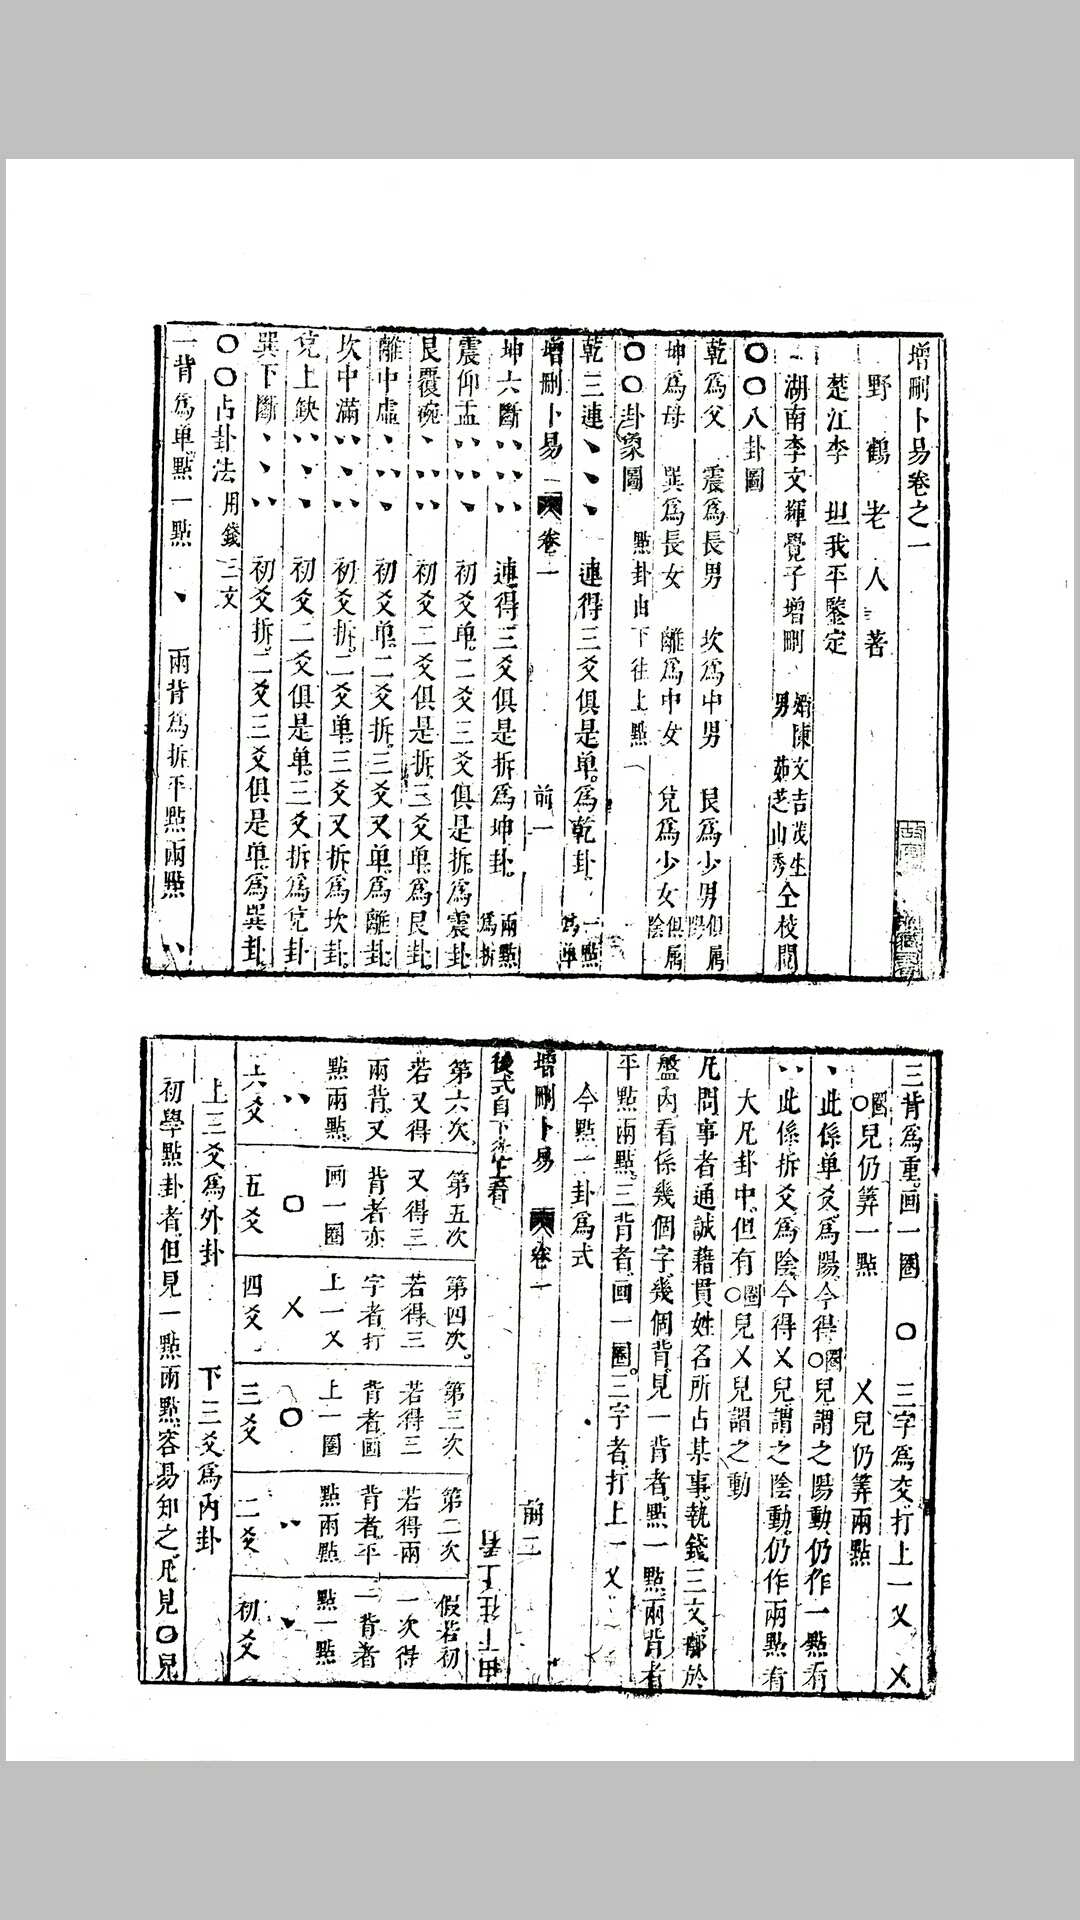 增刪卜易卷之一
野鶴老人著
楚江李坦我平鑒定
湖南李文輝覺子增刪 婿陳文吉茂生 男茹芝山秀 仝校閱
○○八卦圖
乾爲父 震爲長男 坎爲中男 艮爲少男 俱属陽
坤爲母 巽爲長女 離爲中女 兌爲少女 俱属陰
○○卦象圖 點卦由下往上點
乾三連 丶丶丶 連得三爻俱是单。爲乾卦。 一點爲单
增刪卜易 卷一 前一
坤六斷 〃〃〃 連得三爻俱是拆爲坤卦。 兩點爲拆
震仰盂 〃〃丶 初爻单。二爻三爻俱是拆。爲震卦
艮覆碗 丶〃〃 初爻二爻俱是拆。三爻单。爲艮卦。
離中虛 丶〃丶 初爻单。二爻拆。三爻又单。爲離卦
坎中滿 〃丶〃 初爻拆。二爻单。三爻又拆爲坎卦。
兌上缺 〃丶丶 初爻二爻俱是单。三爻拆爲兌卦
巽下斷 丶丶〃 初爻拆。二爻三爻俱是单。爲巽卦。
○○占卦法 用錢三文
一背爲单點一點 丶 兩背爲拆平點兩點 〃
三背爲重。画一圈 ○ 三字爲交打上一乂 乂
○圈兒仍筭一點 乂兒仍筭兩點
丶此係单爻。爲陽。今得○圈兒謂之陽動。仍作一點看
〃此係拆爻。爲陰。今得乂兒謂之陰動。仍作兩點看
大凡卦中。但有○圈兒乂兒謂之動
凡問事者通誠籍貫姓名所占某事。執錢三文。擲於
盤內看係幾個字。幾個背。見一背者。點一點。兩背者
平點兩點。三背者。画一圈。三字者。打上一乂
今點一卦爲式
增刪卜易 卷一 前二
後式自下往上看 由下往上看
第六次。若又得兩背。又點兩點。 〃 六爻
第五次又得三背者亦画一圈 ○ 五爻
第四次。若得三字者打上一乂 乂 四爻
第三次若得三背者画上一圈 ○ 三爻
第二次若得兩背者。平點兩點 〃 二爻
假若初一次得一背者點一點 丶 初爻
上三爻爲外卦 下三爻爲內卦
初學點卦者。但見一點兩點。容易知之。凡見○兒